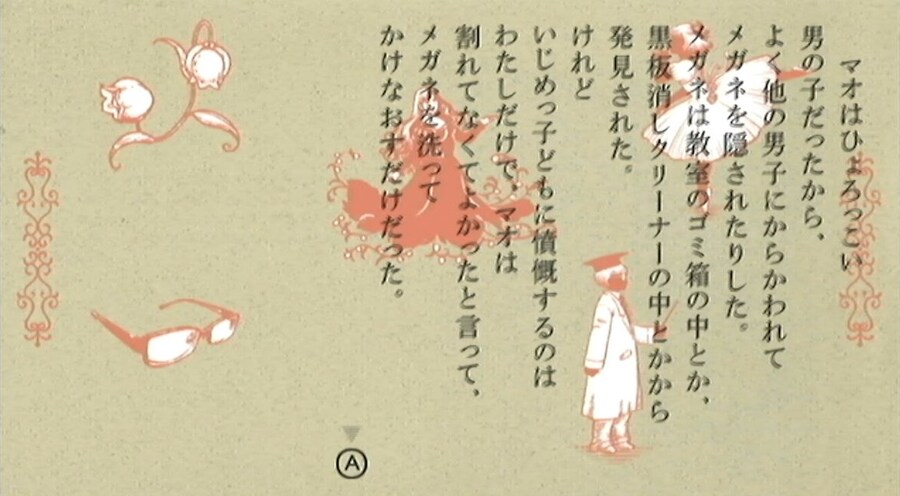 マオはひょろっこい
男の子だったから、
よく他の男子にからかわれて
メガネを隠されたりした。
メガネは教室のゴミ箱の中とか、
黒板消しクリーナーの中とかから
発見された。
けれど
いじめっ子どもに憤慨するのは
わたしだけで、マオは
割れてなくてよかったと言って、
メガネを洗って
かけなおすだけだった。
A